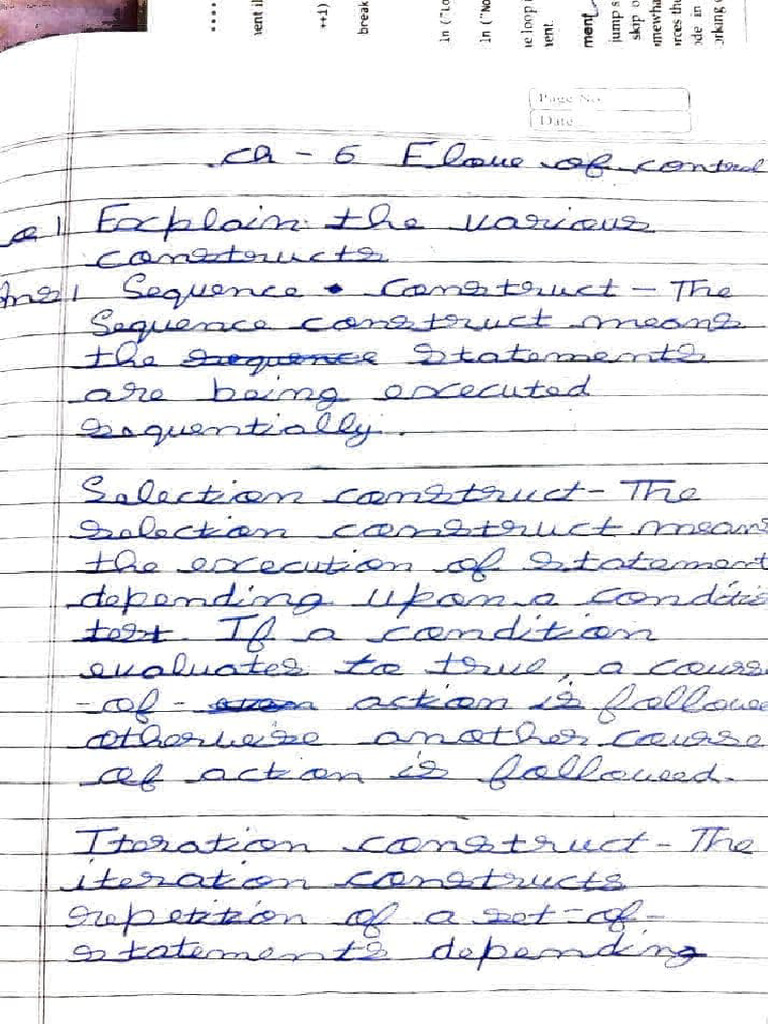 ....
ent il
++1)
break
ln ("Lo
ln ("No
e loop i
ent.
ment
jump s
skip o
mewha
rces the
ode in
rking
Page No.
Date
Ch - 6 Flow of control
Q 1 Explain the various
constructs
Ans 1 Sequence construct - The
Sequence construct means
the sequence statements
are being executed
sequentially.
Selection construct - The
selection construct means
the execution of statement
depending upon a conditio
test. If a condition
evaluates to true, a course
- of - action is followed
otherwise another course
of action is followed.
Iteration construct - The
iteration constructs
repetition of a set-of-
statements depending